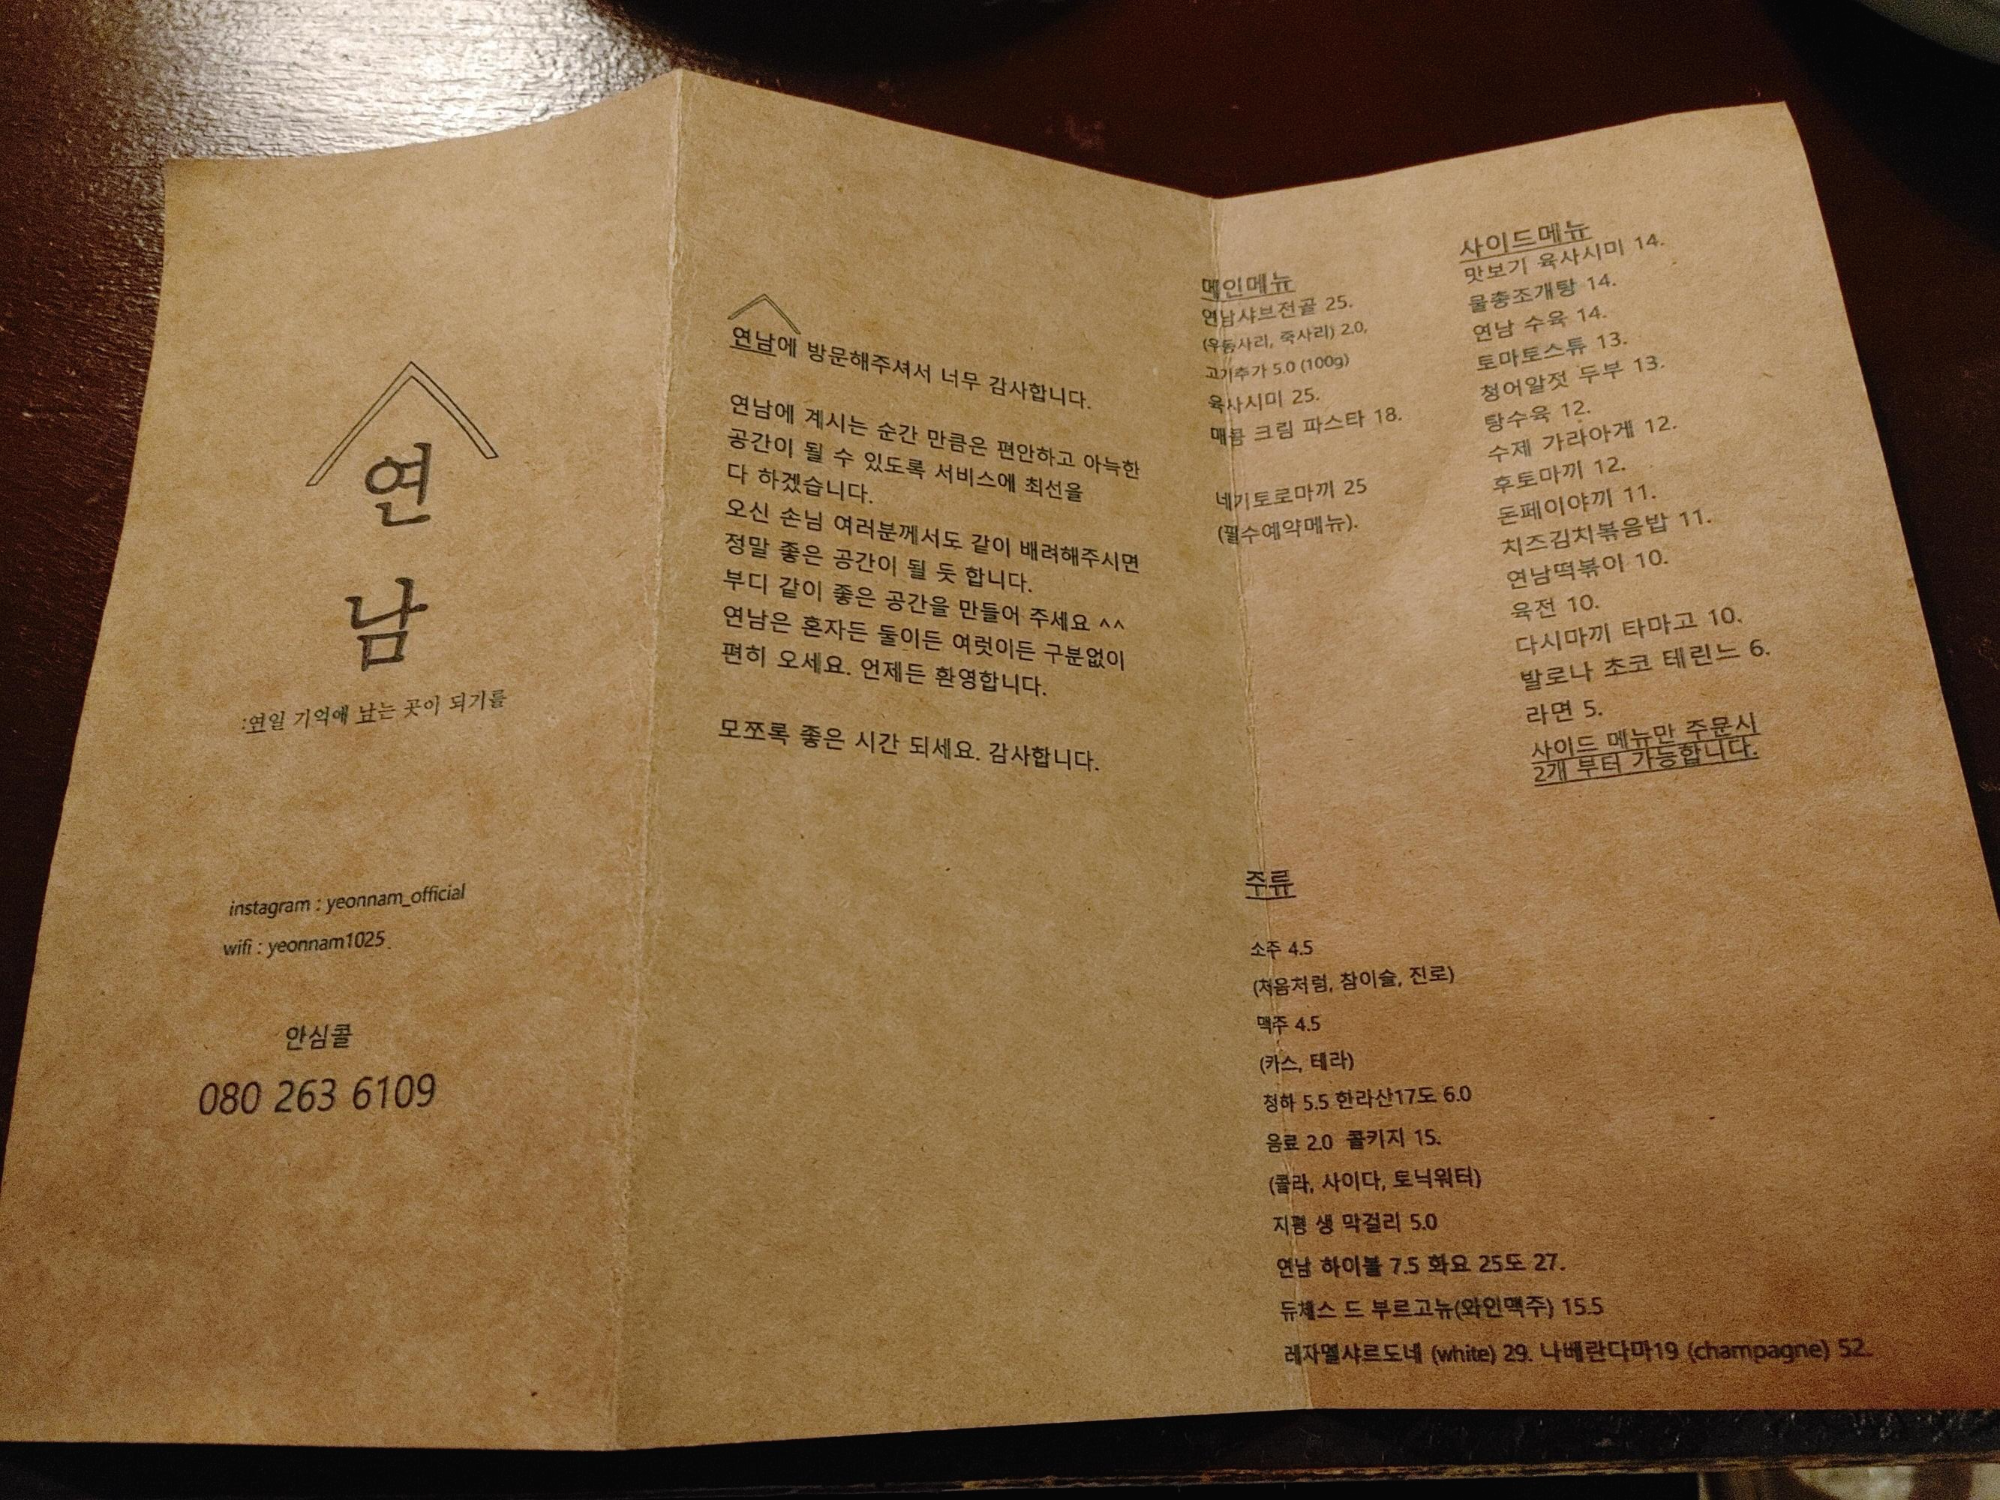 연
남
:연일 기억에 남는 곳이 되기를
instagram : yeonnam_official
wifi : yeonnam1025.
안심콜
080 263 6109
연남에 방문해주셔서 너무 감사합니다.
연남에 계시는 순간 만큼은 편안하고 아늑한
공간이 될 수 있도록 서비스에 최선을
다 하겠습니다.
오신 손님 여러분께서도 같이 배려해주시면
정말 좋은 공간이 될 듯 합니다.
부디 같이 좋은 공간을 만들어 주세요 ^^
연남은 혼자든 둘이든 여럿이든 구분없이
편히 오세요. 언제든 환영합니다.
모쪼록 좋은 시간 되세요. 감사합니다.
메인메뉴
연남샤브전골 25.
(우동사리, 죽사리) 2.0,
고기추가 5.0 (100g)
육사시미 25.
매콤 크림 파스타 18.
네기토로마끼 25
(필수예약메뉴).
사이드메뉴
맛보기 육사시미 14.
물총조개탕 14.
연남 수육 14.
토마토스튜 13.
청어알젓 두부 13.
탕수육 12.
수제 가라아게 12.
후토마끼 12.
돈페이야끼 11.
치즈김치볶음밥 11.
연남떡볶이 10.
육전 10.
다시마끼 타마고 10.
발로나 초코 테린느 6.
라면 5.
사이드 메뉴만 주문시
2개 부터 가능합니다.
주류
소주 4.5
(처음처럼, 참이슬, 진로)
맥주 4.5
(카스, 테라)
청하 5.5 한라산17도 6.0
음료 2.0 콜키지 15.
(콜라, 사이다, 토닉워터)
지평 생 막걸리 5.0
연남 하이볼 7.5 화요 25도 27.
듀체스 드 부르고뉴(와인맥주) 15.5
레자멜샤르도네 (white) 29. 나베란다마19 (champagne) 52.